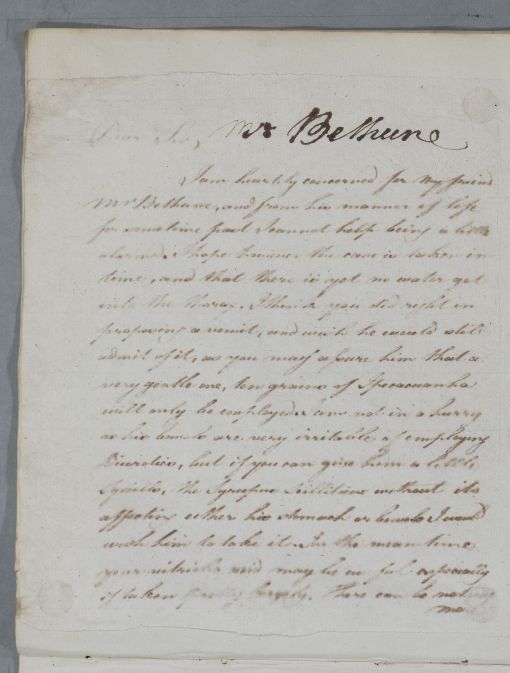 Mr Bethune
Dear Sir,
I am heartily concerned for my friend
Mr Bethune, and from his manner of life
for sometime past I cannot help being a little
alarmed. I hope however the case is taken in
time, and that there is yet no water got
into the thorax. I think you did right in
proposing a vomit, and wish he would still
admit of it, as you may assure him that a
very gentle one, ten grains of Ipecacuanha
will only be employed. I am not in a hurry
as his bowels are very irritable of employing
Diuretics, but if you can give him a little
Squills, the Syrupus Scilliticus without its
affecting either his stomach or bowels I would
wish him to take it. In the mean time
your vitriolic acid may be useful especially
if taken pretty freely. There can be nothing
more